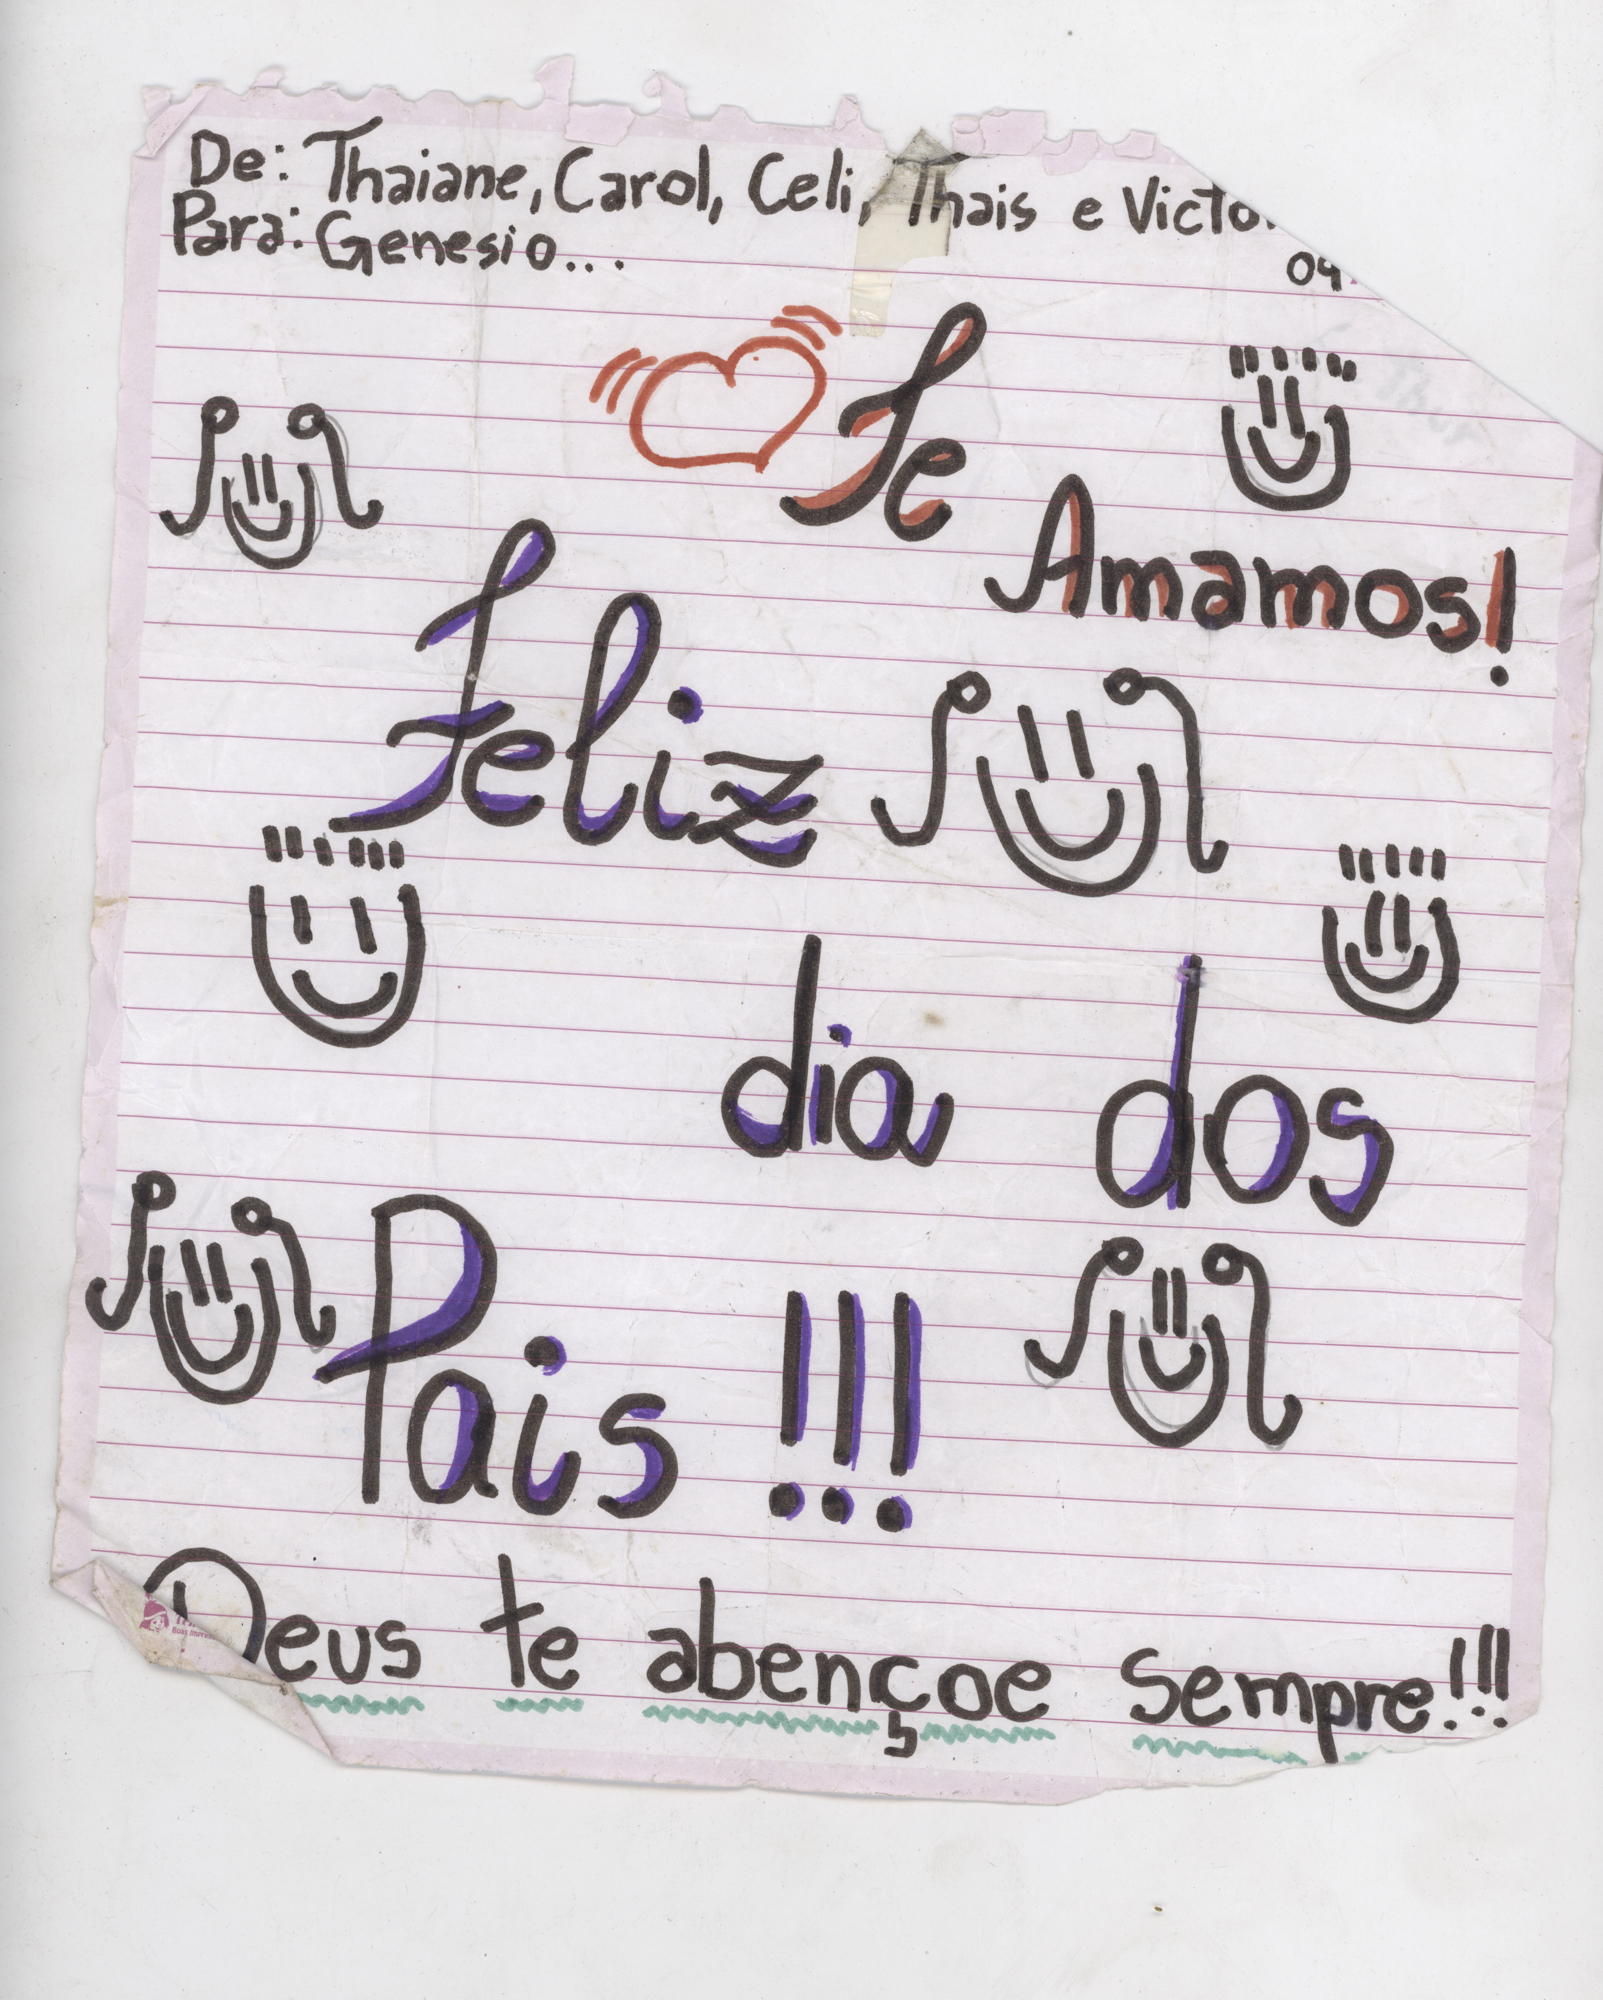 De: Thaiane, Carol, Celi, Thais e Victo
Para: Genesio...
09
Te
Amamos!
Feliz
dia dos
Pais !!!
Deus te abençoe sempre!!!